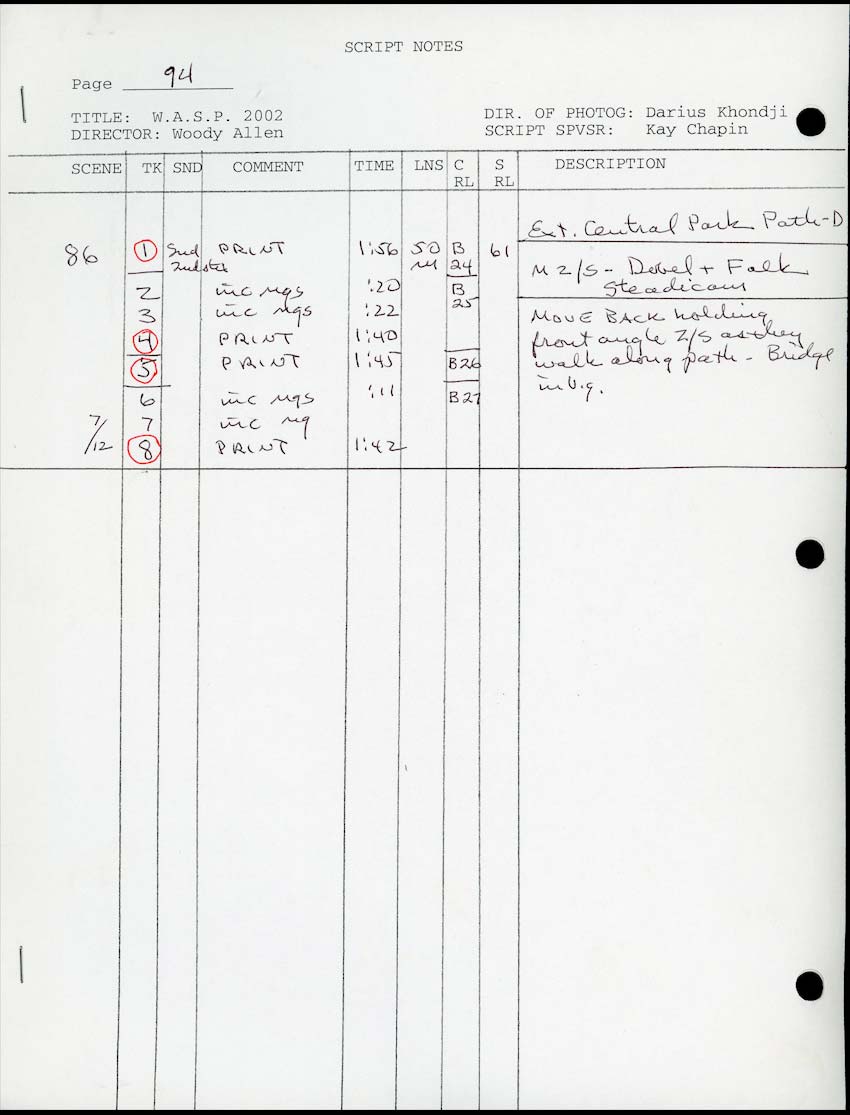 SCRIPT NOTES
Page 94
TITLE: W.A.S.P. 2002
DIR. OF PHOTOG: Darius Khondji
DIRECTOR: Woody Allen
SCRIPT SPVSR: Kay Chapin
SCENE TK SND COMMENT TIME LNS C RL S RL DESCRIPTION
Ext. Central Park Path-D
86 1 Snd PRINT 1:56 50 B 61
2nd stx 24
M 2/S - Dobel + Falk
Steadicam
2 inc ngs :20 B
3 inc ngs :22 25
MOVE BACK holding
4 PRINT 1:40
front angle 2/S as they
5 PRINT 1:45 B26
walk along path - Bridge
in b.g.
6 inc ngs :11 B27
7 inc ng
7/12 8 PRINT 1:42